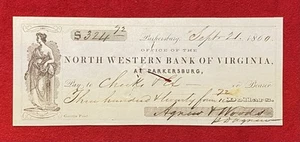 $324 72/
Parkersburg, Sept. 21. 1860
OFFICE OF THE
NORTH WESTERN BANK OF VIRGINIA,
AT PARKERSBURG,
Pay to Check Bill or Bearer
Three hundred & twenty four 72/ Dollars.
Agnew & Woods